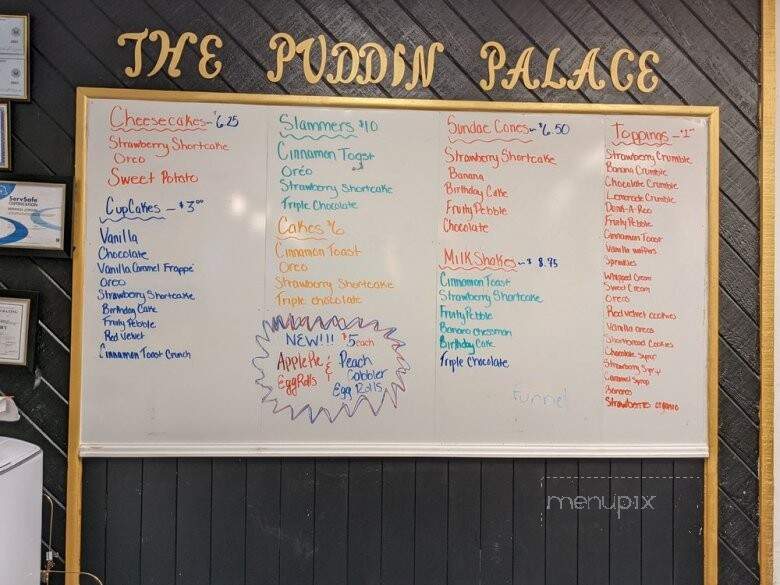 THE PUDDIN PALACE
Cheesecakes - $6.25
Strawberry Shortcake
Oreo
Sweet Potato
CupCakes - $3.00
Vanilla
Chocolate
Vanilla Caramel Frappe
Oreo
Strawberry Shortcake
Birthday Cake
Fruity Pebble
Red Velvet
Cinnamon Toast Crunch
Slammers $10
Cinnamon Toast
Oreo
Strawberry Shortcake
Triple Chocolate
Cakes $6
Cinnamon Toast
Oreo
Strawberry Shortcake
Triple chocolate
NEW!!! $5 each
Apple Pie & Egg Rolls
Peach Cobbler Egg Rolls
Sundae Cones - $6.50
Strawberry Shortcake
Banana
Birthday Cake
Fruity Pebble
Chocolate
MilkShakes - $8.95
Cinnamon Toast
Strawberry Shortcake
Fruity Pebble
Banana chessman
Birthday Cake
Triple Chocolate
Funnel
Toppings - $1
Strawberry Crumble
Banana Crumble
Chocolate Crumble
Lemonade Crumble
Fruity Pebble
Cinnamon Toast
Vanilla waffers
Sprinkles
Whipped Cream
Sweet Cream
Oreos
Red velvet cookies
Vanilla oreos
Shortbread Cookies
Chocolate Syrup
Strawberry Syrup
Caramel Syrup
Bananas
Strawberries
ServSafe
CERTIFICATION
menupix